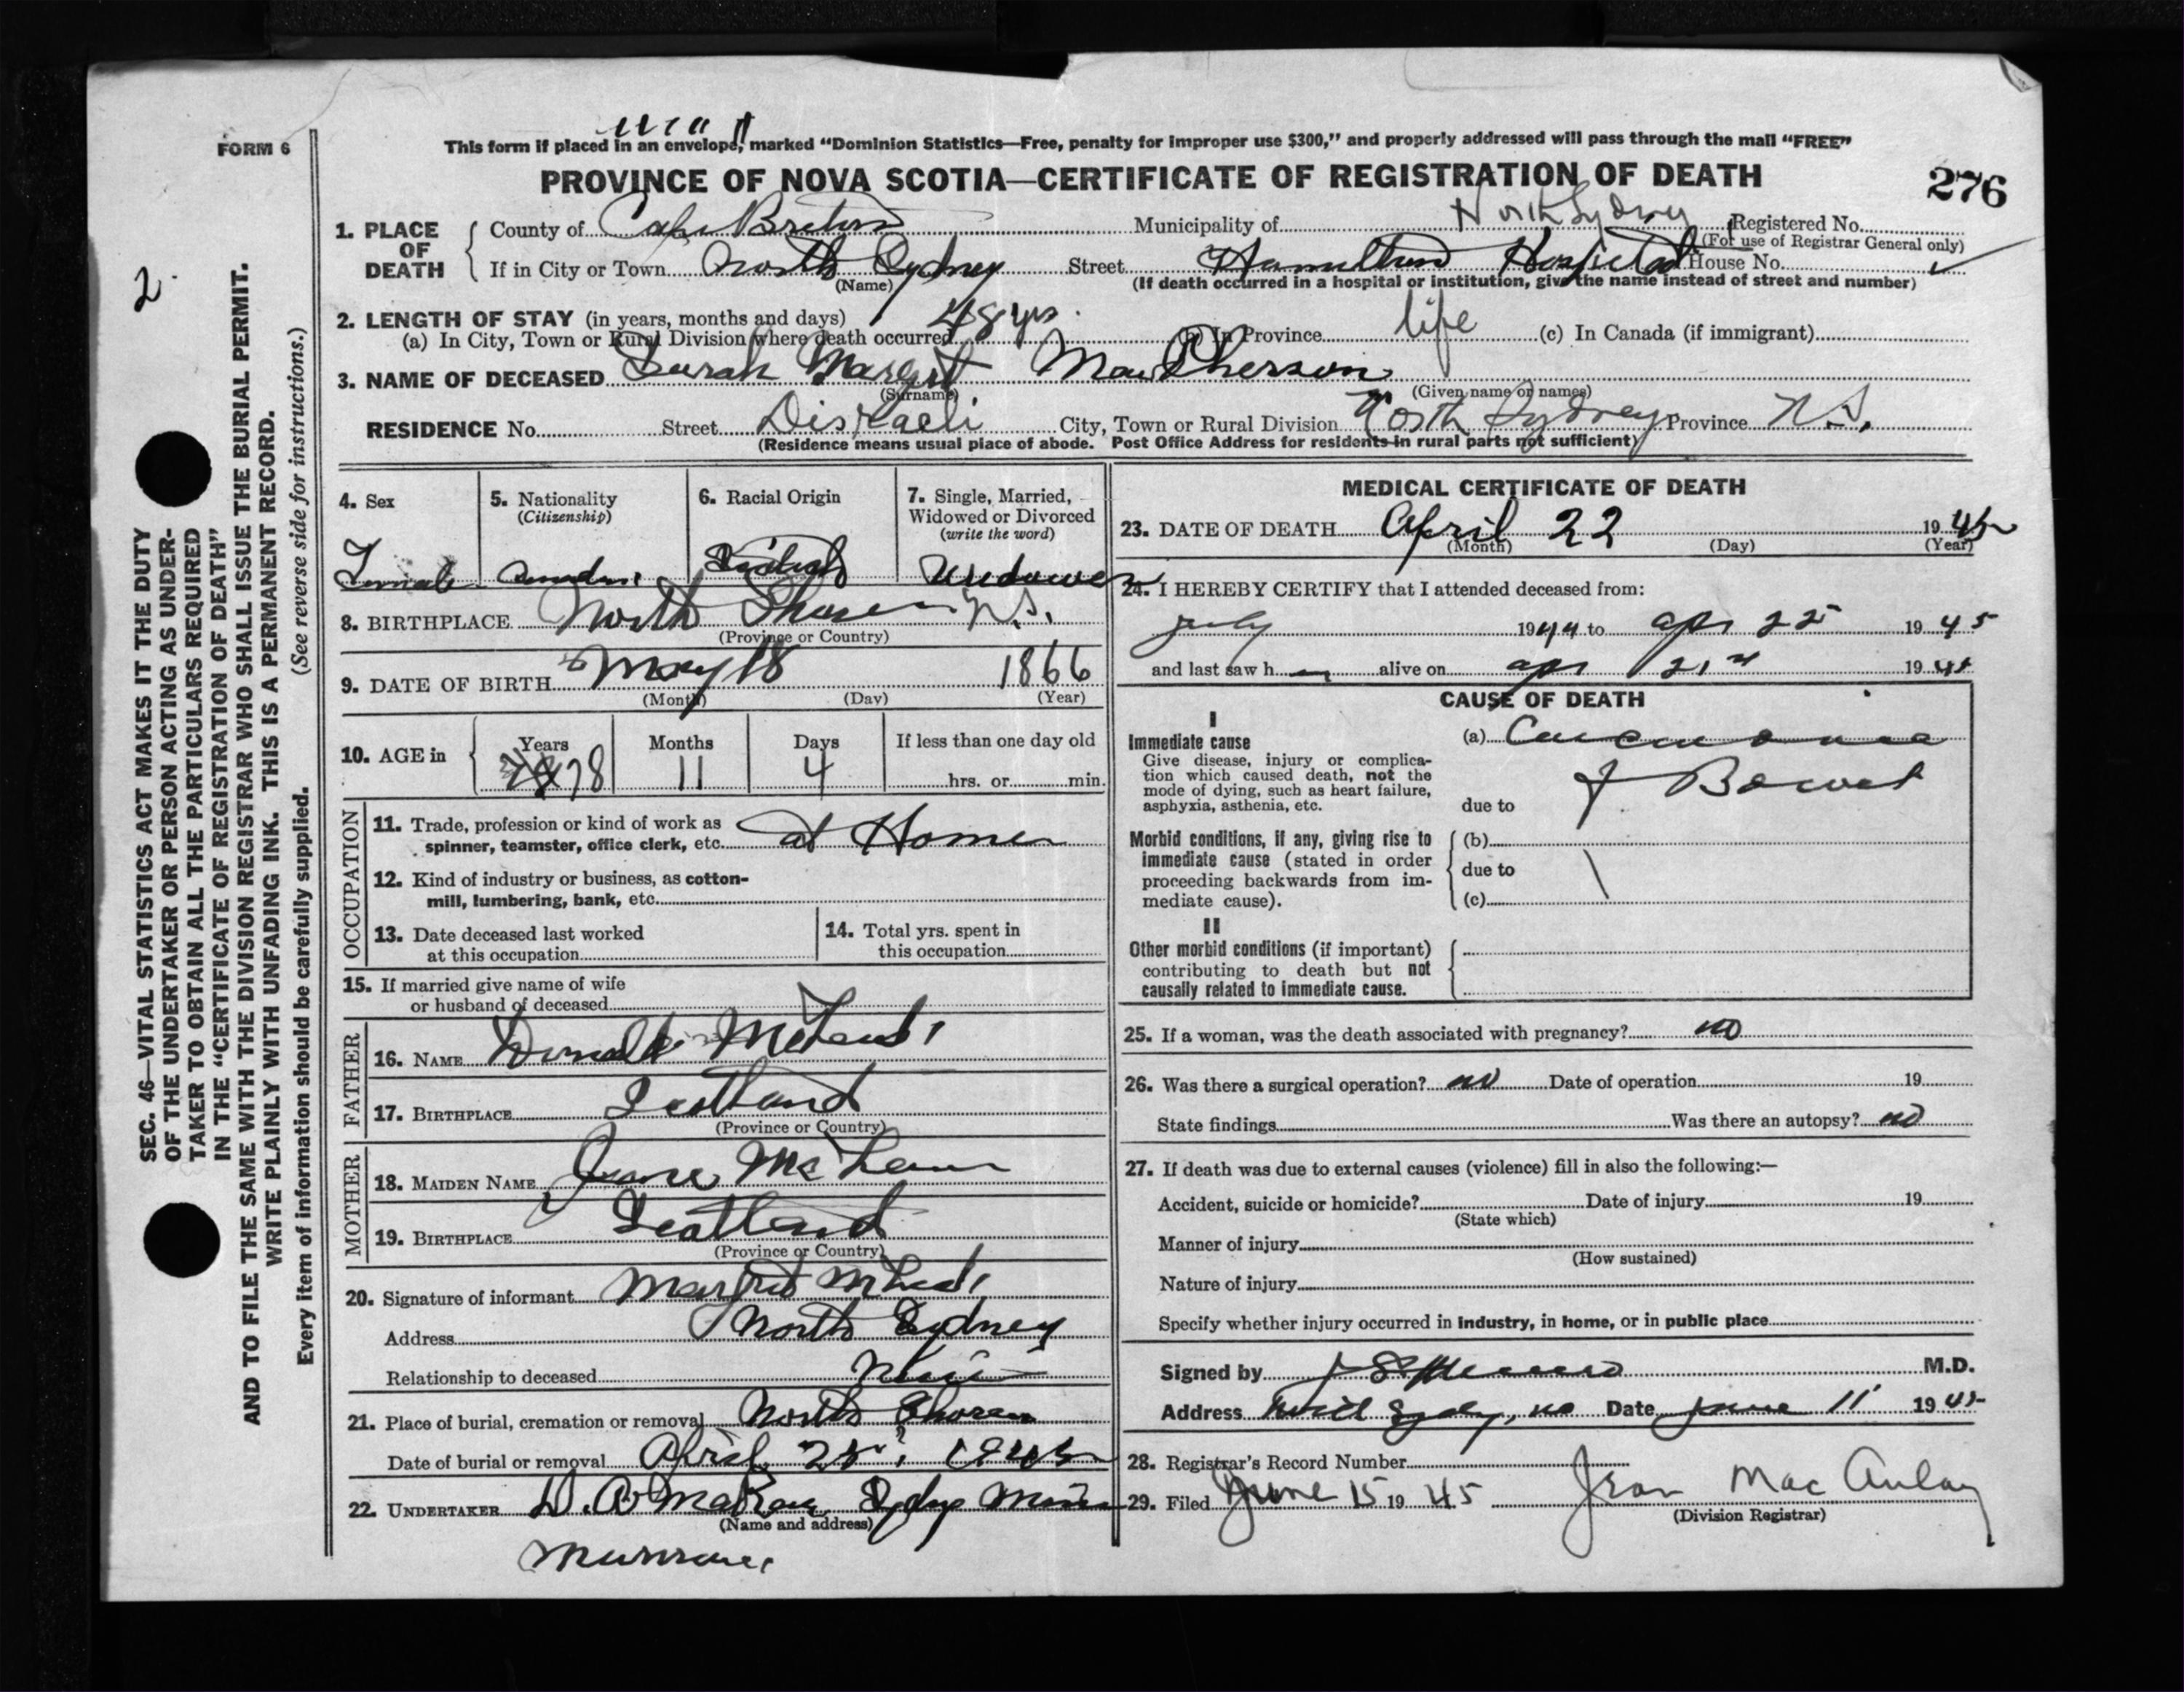 FORM 6
This form if placed in an envelope, marked "Dominion Statistics—Free, penalty for improper use $300," and properly addressed will pass through the mail "FREE"
PROVINCE OF NOVA SCOTIA—CERTIFICATE OF REGISTRATION OF DEATH
276
2
SEC. 46—VITAL STATISTICS ACT MAKES IT THE DUTY
OF THE UNDERTAKER OR PERSON ACTING AS UNDER-
TAKER TO OBTAIN ALL THE PARTICULARS REQUIRED
IN THE "CERTIFICATE OF REGISTRATION OF DEATH"
AND TO FILE THE SAME WITH THE DIVISION REGISTRAR WHO SHALL ISSUE THE BURIAL PERMIT.
WRITE PLAINLY WITH UNFADING INK. THIS IS A PERMANENT RECORD.
Every item of information should be carefully supplied. (See reverse side for instructions.)
1. PLACE OF DEATH
County of Cape Breton Municipality of North Sydney Registered No.
(For use of Registrar General only)
If in City or Town North Sydney Street Hamilton Hospital House No.
(Name) (If death occurred in a hospital or institution, give the name instead of street and number)
2. LENGTH OF STAY (in years, months and days)
(a) In City, Town or Rural Division where death occurred 48 yrs. (b) In Province life (c) In Canada (if immigrant)
3. NAME OF DECEASED Sarah Margret MacPherson
(Surname) (Given name or names)
RESIDENCE No. Street Disraeli City, Town or Rural Division North Sydney Province N.S.
(Residence means usual place of abode. Post Office Address for residents in rural parts not sufficient)
4. Sex Female
5. Nationality (Citizenship) Canadian
6. Racial Origin Scotch
7. Single, Married, Widowed or Divorced (write the word) Widower
8. BIRTHPLACE North Shore N.S.
(Province or Country)
9. DATE OF BIRTH May 18 1866
(Month) (Day) (Year)
10. AGE in Years 78 Months 11 Days 4 If less than one day old hrs. or min.
OCCUPATION
11. Trade, profession or kind of work as spinner, teamster, office clerk, etc. at Home
12. Kind of industry or business, as cotton-mill, lumbering, bank, etc.
13. Date deceased last worked at this occupation
14. Total yrs. spent in this occupation
15. If married give name of wife or husband of deceased
FATHER
16. NAME Donald McLeod
17. BIRTHPLACE Scotland
(Province or Country)
MOTHER
18. MAIDEN NAME McLean
19. BIRTHPLACE Scotland
(Province or Country)
20. Signature of informant Margret McLeod
Address North Sydney
Relationship to deceased
21. Place of burial, cremation or removal North Shore
Date of burial or removal April 25 1945
22. UNDERTAKER D. A. Sydney Mines
(Name and address)
MEDICAL CERTIFICATE OF DEATH
23. DATE OF DEATH April 22 1945
(Month) (Day) (Year)
24. I HEREBY CERTIFY that I attended deceased from:
July 1944 to apr 22 1945
and last saw h alive on apr 21st 1945
CAUSE OF DEATH
I
Immediate cause
Give disease, injury or complica-
tion which caused death, not the
mode of dying, such as heart failure,
asphyxia, asthenia, etc.
(a) Carcinoma
due to of Bowel
Morbid conditions, if any, giving rise to
immediate cause (stated in order
proceeding backwards from im-
mediate cause).
(b)
due to
(c)
II
Other morbid conditions (if important)
contributing to death but not
causally related to immediate cause.
25. If a woman, was the death associated with pregnancy? no
26. Was there a surgical operation? no Date of operation 19
State findings Was there an autopsy? no
27. If death was due to external causes (violence) fill in also the following:—
Accident, suicide or homicide? Date of injury 19
(State which)
Manner of injury
(How sustained)
Nature of injury
Specify whether injury occurred in industry, in home, or in public place
Signed by M.D.
Address North Sydney, NS Date June 11 1945
28. Registrar's Record Number
29. Filed June 15 1945 Jean MacAulay
(Division Registrar)